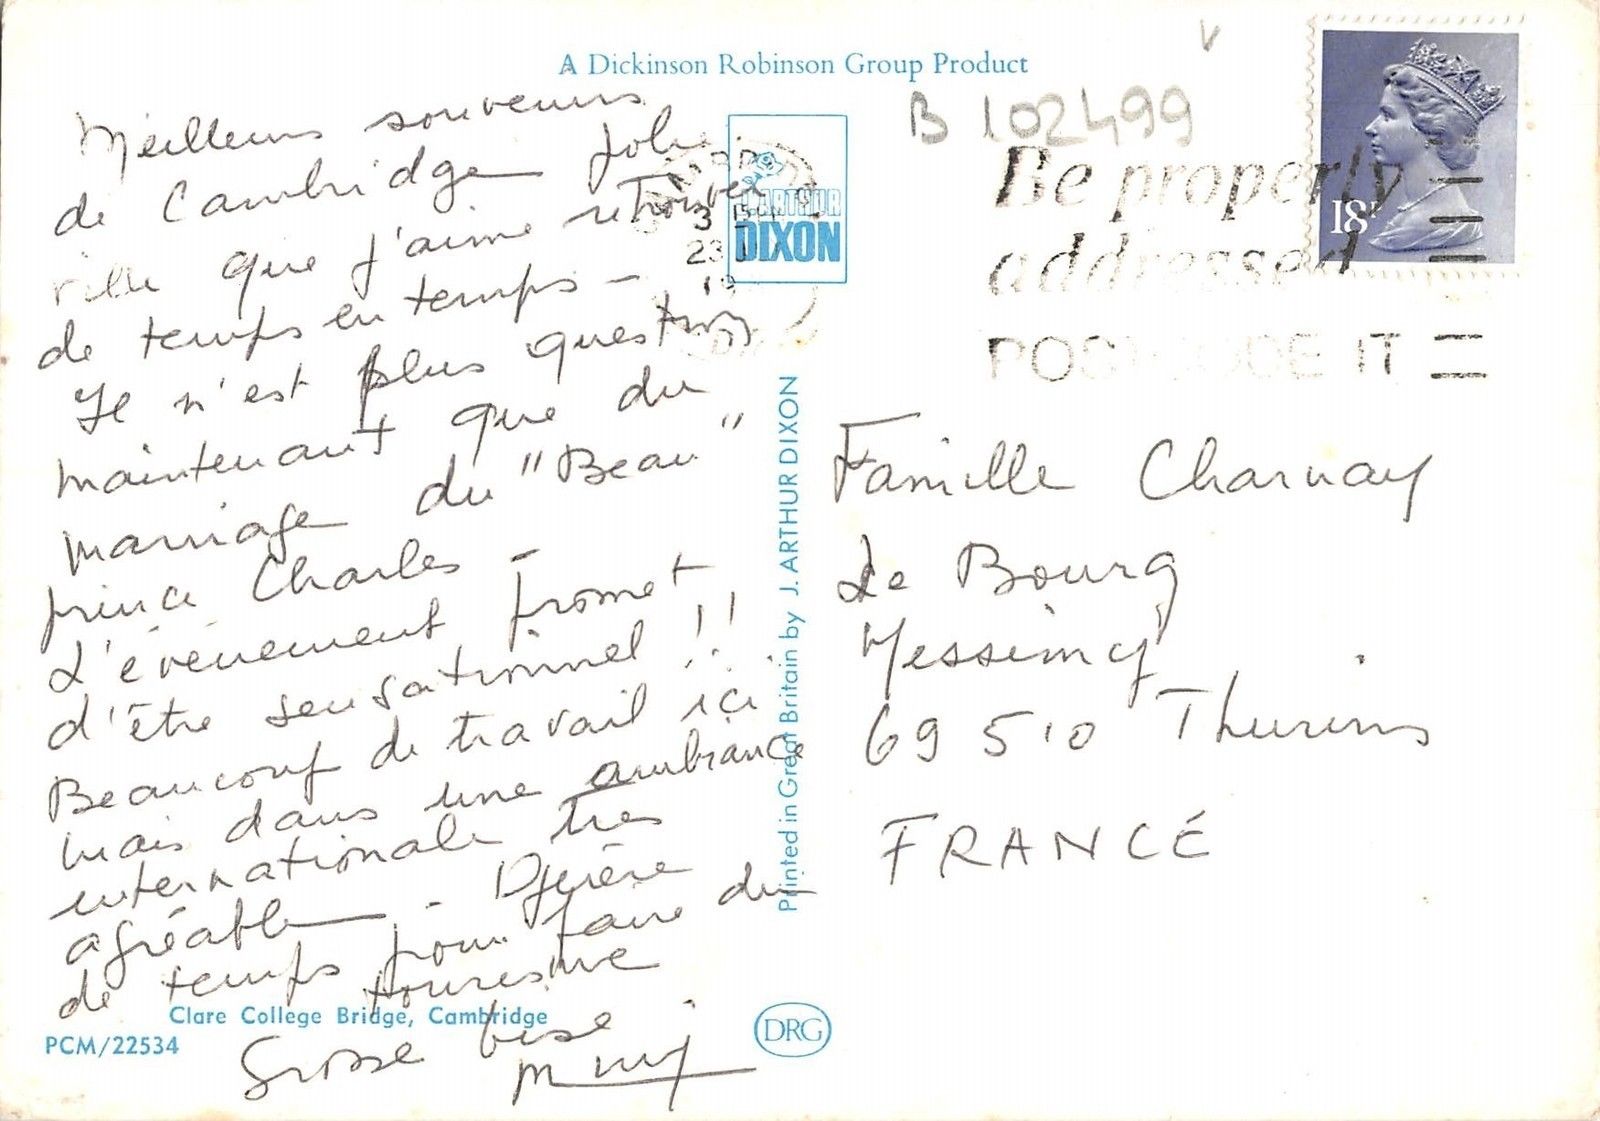 A Dickinson Robinson Group Product
B 102499
Be properly
addressed
POSTCODE IT
18P
ARTHUR
DIXON
CAMBRIDGE
3
23
19
Meilleurs souvenirs
de Cambridge jolie
ville que j'aime retrouver
de temps en temps -
Il n'est plus question
maintenant que du
mariage du "Beau"
prince Charles -
L'évènement promet
d'être sensationnel !!
Beaucoup de travail ici
mais dans une ambiance
internationale très
agréable - 
de temps pour faire du
tourisme
Grosse bise
Famille Charnay
Le Bourg
Messimy
69 510 Thurins
FRANCE
Printed in Great Britain by J. ARTHUR DIXON
Clare College Bridge, Cambridge
PCM/22534
DRG